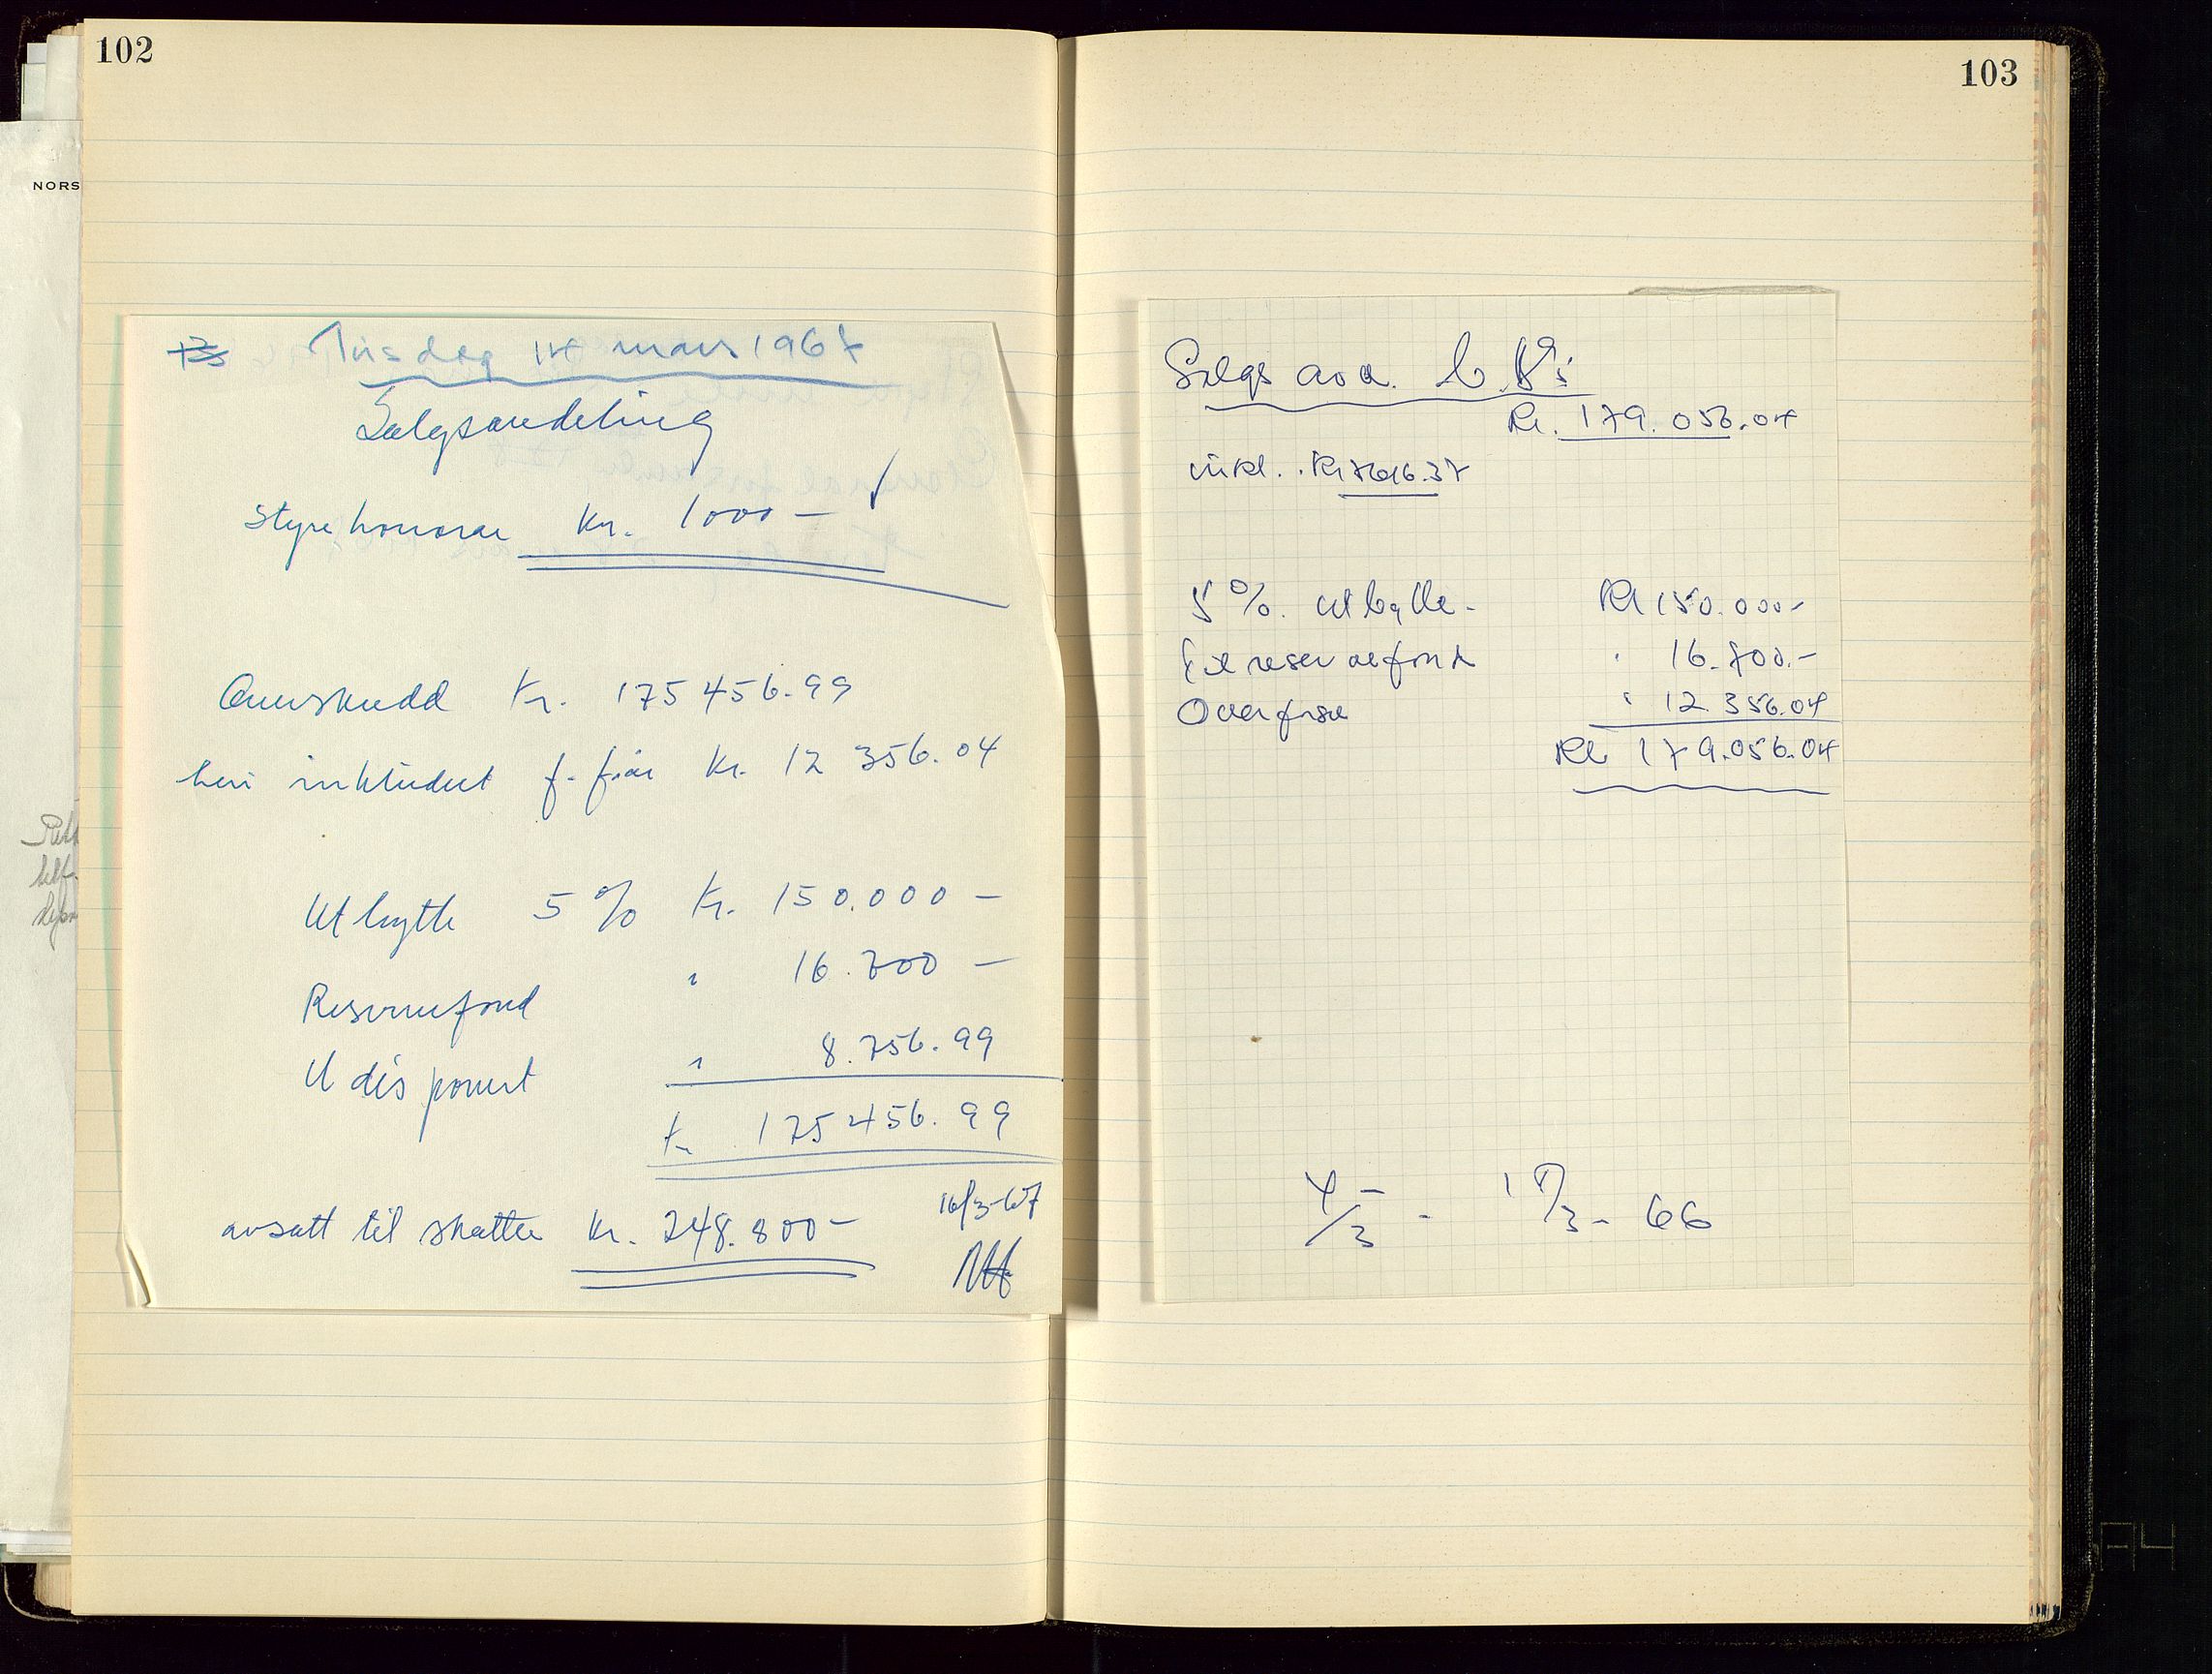 102
NORS
Tirsdag 14 mars 1967
Salgsavdeling
Styrehonorar Kr. 1000 –
Overskudd Kr. 175 456.99
heri inkludert f. fjår Kr. 12 356.04
Utbytte 5 % Kr. 150.000 –
Reservefond " 16.700 –
Udisponert " 8.756.99
Kr. 175 456.99
avsatt til skatter Kr. 248.800 –
16/3-67
103
Salgs avd.
Kr. 179.056.04
inkl. Kr
5 %. utbytte - Kr 150.000 -
reservefond " 16.700.-
Overføre " 12.356.04
Kr 179.056.04
4/3 - 17/3 - 66